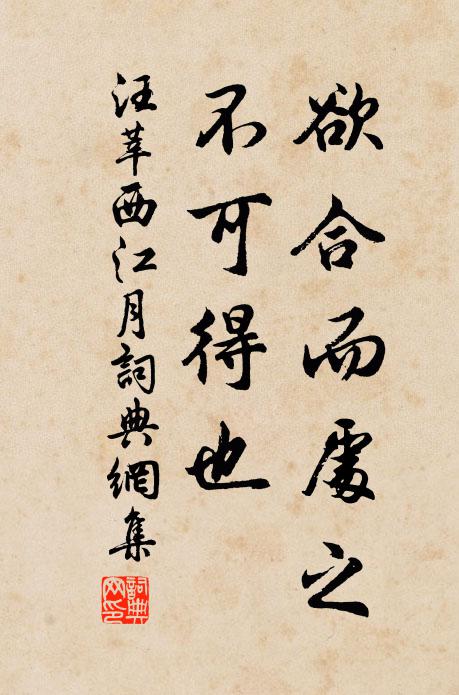 欲合而處之
不可得也
汪莘西江月詞典網集
詞典網印